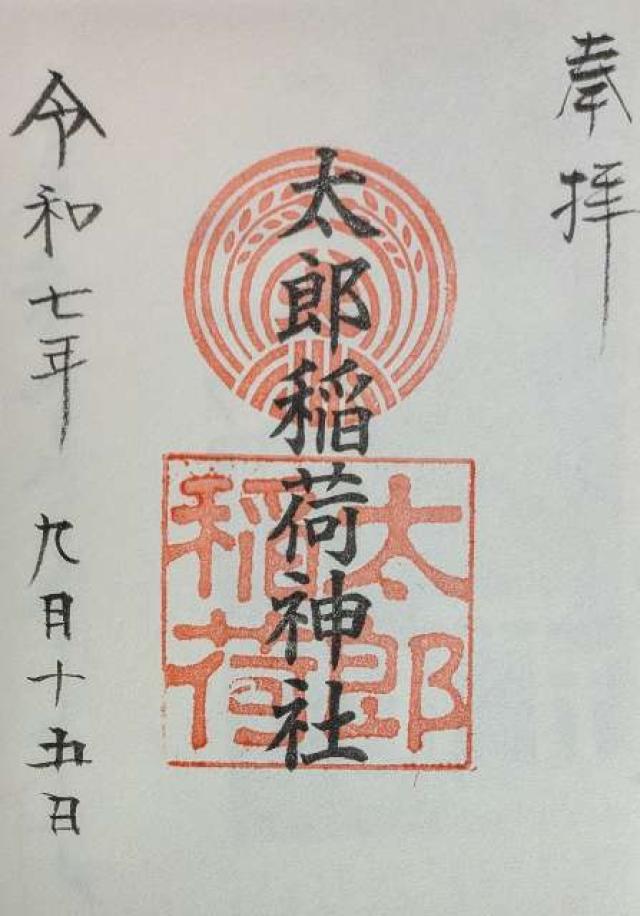 奉拝
太郎稲荷神社
太郎
稲荷
令和七年 九月十五日